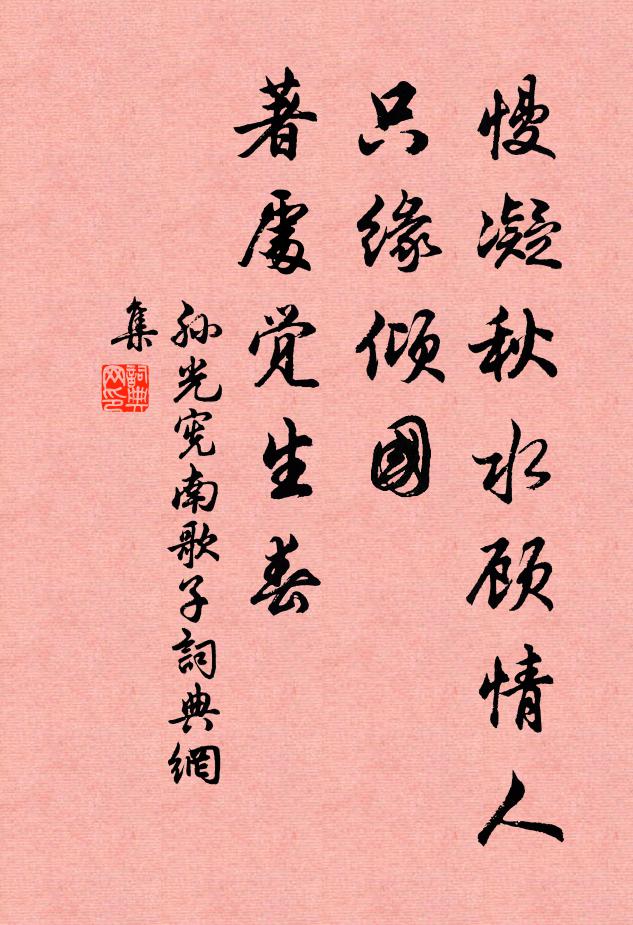 慢凝秋水顾情人
只缘倾國
著處觉生春
孙光宪南歌子詞典網
集
詞典网印